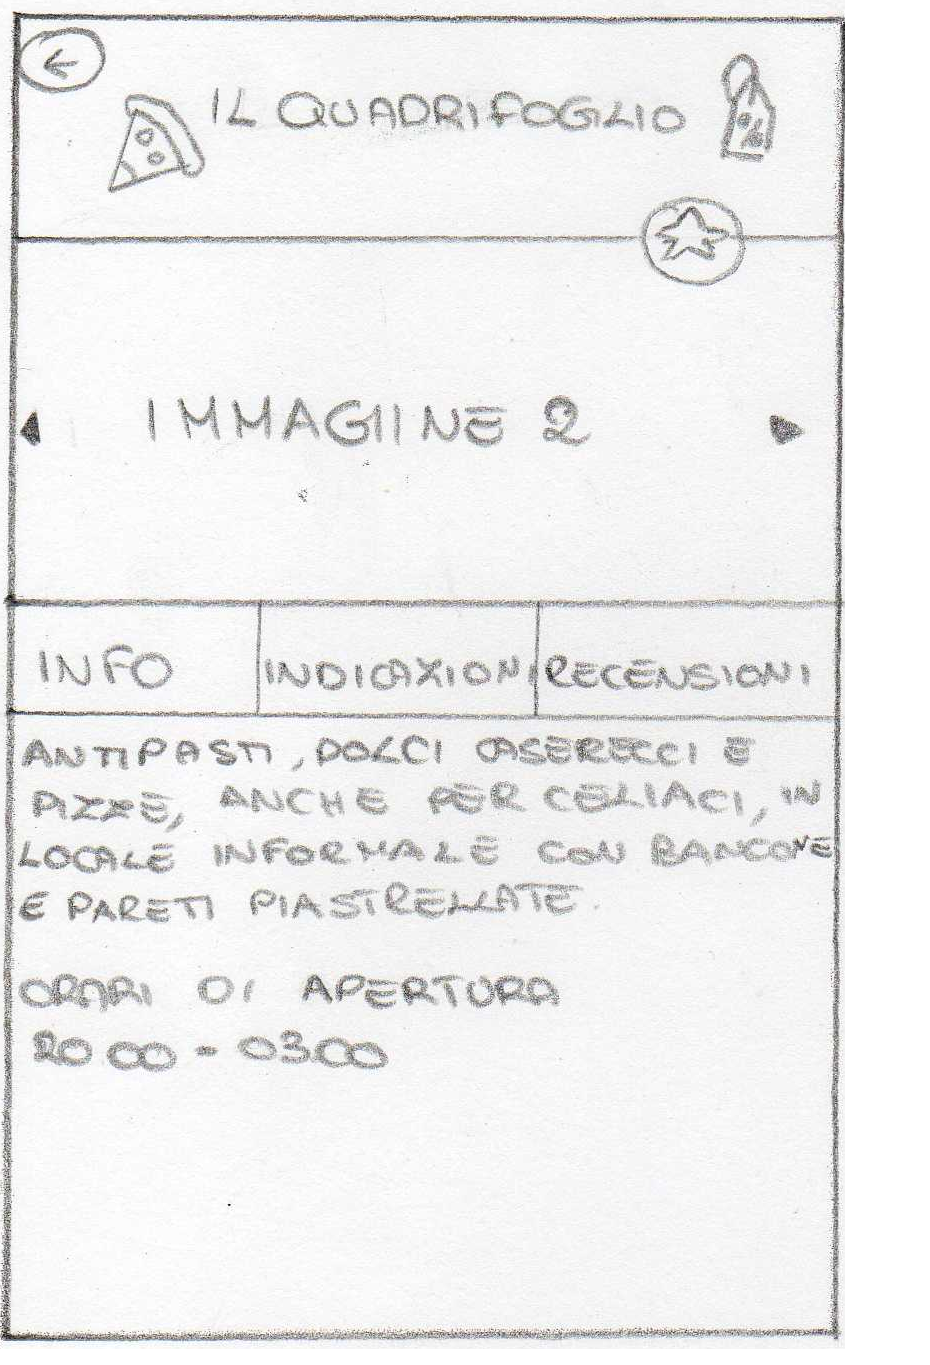 IL QUADRIFOGLIO
IMMAGIINE 2
INFO
INDICAZIONI
RECENSIONI
ANTIPASTI, DOLCI CASERECCI E
PIZZE, ANCHE PER CELIACI, IN
LOCALE INFORMALE CON BANCONE
E PARETI PIASTRELLATE.
ORARI DI APERTURA
20 00 - 03 00